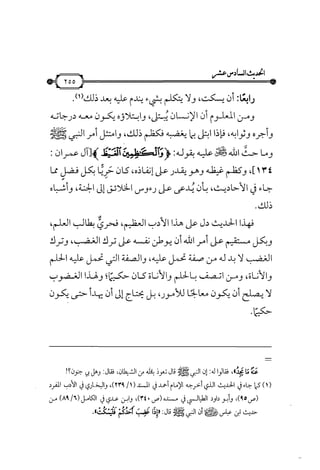 الحديث السادس عشر
٢٥٥
رابعًا: أن يسكت، ولا يتكلم بشيء يندم عليه بعد ذلك(١).
ومن المعلوم أن الإنسان يُبتلى، وابتلاؤه يكون معه درجاته
وأجره وثوابه، فإذا ابتلي بما يغضبه فكظم ذلك، وامتثل أمر النبي ﷺ
وما حثَّ الله ﷻ عليه بقوله: ﴿وَالْكَاظِمِينَ الْغَيْظَ﴾ [آل عمران:
١٣٤]، وكظم غيظه وهو يقدر على إنفاذه، كان حَرِيًّا بكل فضل مما
جاء في الأحاديث، بأن يُدعى على رءوس الخلائق إلى الجنة، وأشباه
ذلك.
فهذا الحديث دل على هذا الأدب العظيم، فحريٌّ بطالب العلم،
وبكل مستقيم على أمر الله أن يوطن نفسه على ترك الغضب، وترك
الغضب لا بد له من صفة تحمل عليه، والصفة التي تحمل عليه الحلم
والأناة، ومن اتصف بالحلم والأناة كان حكيمًا؛ ولهذا الغضوب
لا يصلح أن يكون معالجًا للأمور، بل يحتاج إلى أن يهدأ حتى يكون
حكيمًا.
=
عَنْهُ مَا يَجِدُ»، فقالوا له: إن النبي ﷺ قال تعوذ بالله من الشيطان، فقال: وهل بي جنون؟!
(١) كما جاء في الحديث الذي أخرجه الإمام أحمد في المسند (١/ ٢٣٩)، والبخاري في الأدب المفرد
(ص٩٥)، وأبو داود الطيالسي في مسنده (ص٣٤٠)، وابن عدي في الكامل (٦/ ٨٩) من
حديث ابن عباس أن النبي ﷺ قال: «إِذَا غَضِبَ أَحَدُكُمْ فَلْيَسْكُتْ».